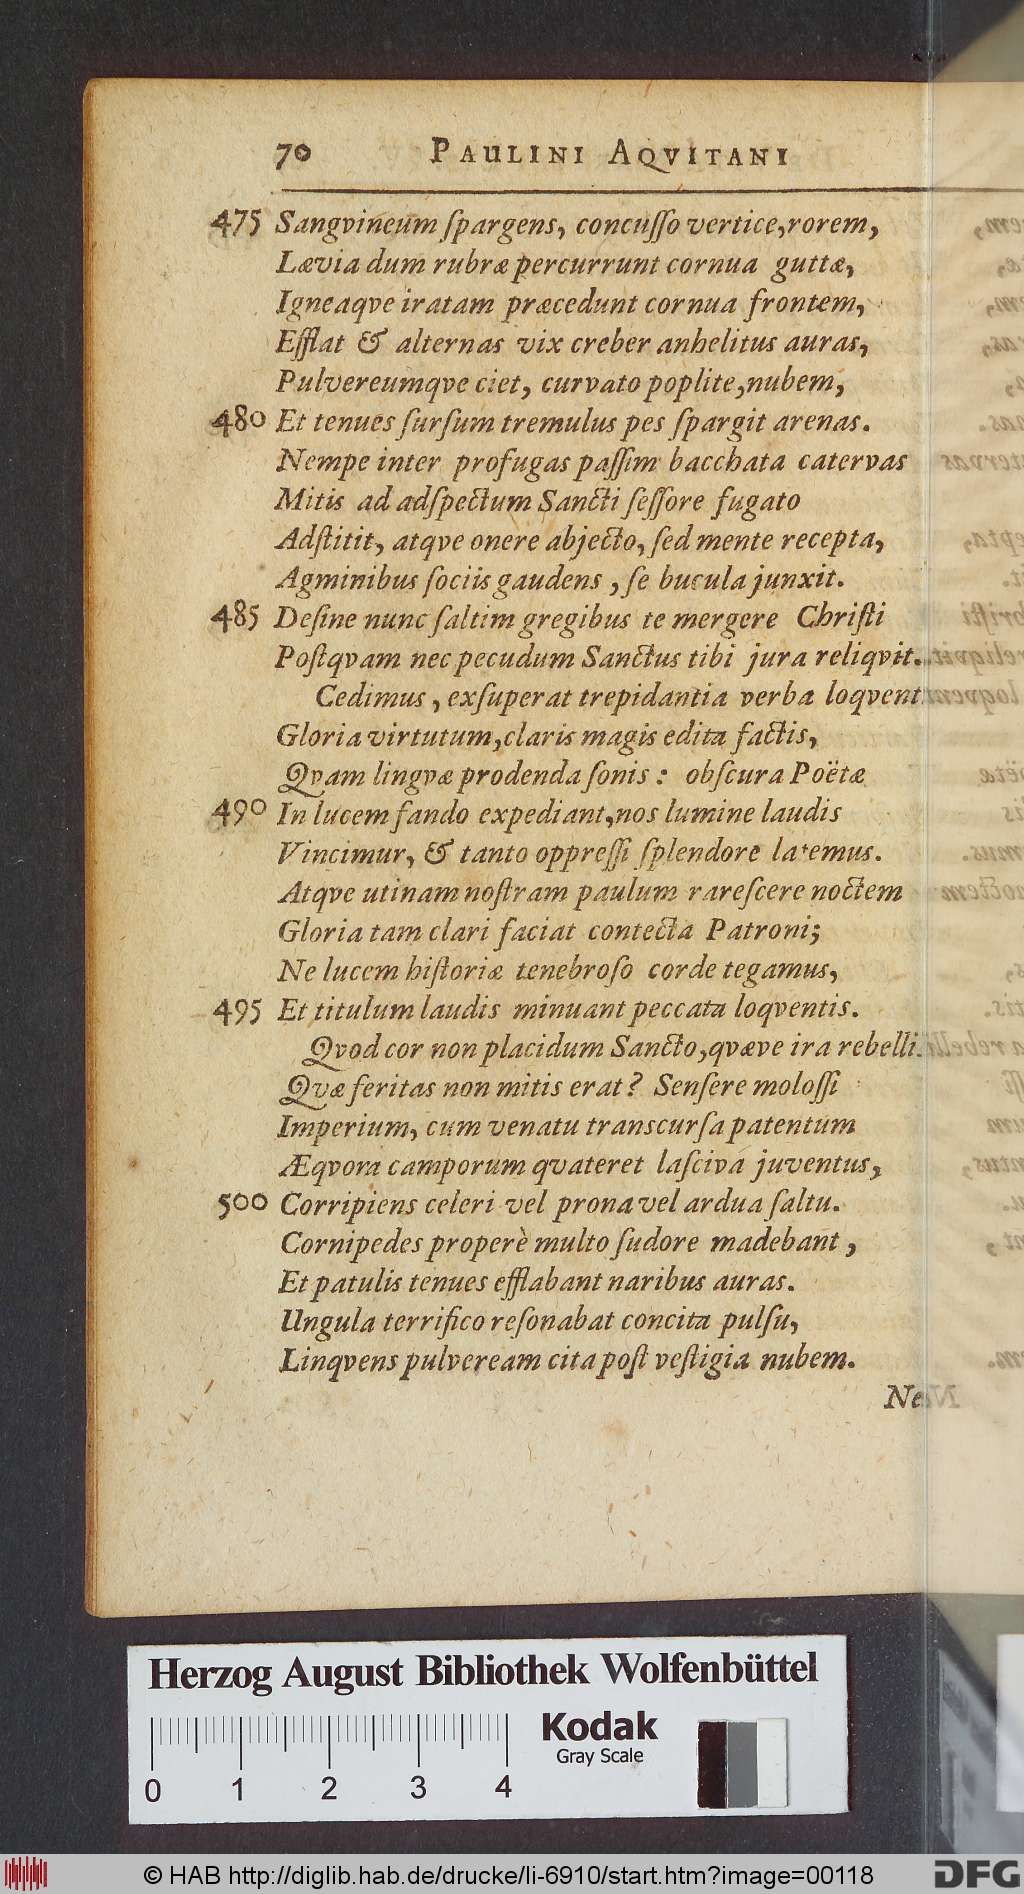 70 PAULINI AQVITANI
475 Sangvineum ſpargens, concuſſo vertice, rorem,
Lævia dum rubræ percurrunt cornua guttæ,
Igneaqve iratam præcedunt cornua frontem,
Efflat & alternas vix creber anhelitus auras,
Pulvereumqve ciet, curvato poplite, nubem,
480 Et tenues ſurſum tremulus pes ſpargit arenas.
Nempe inter profugas paſſim bacchata catervas
Mitis ad adſpectum Sancti ſeſſore fugato
Adſtitit, atqve onere abjecto, ſed mente recepta,
Agminibus ſociis gaudens, ſe bucula junxit.
485 Deſine nunc ſaltim gregibus te mergere Chriſti
Poſtqvam nec pecudum Sanctus tibi jura reliqvit.
Cedimus, exſuperat trepidantia verba loqvent
Gloria virtutum, claris magis edita factis,
Qvam lingvæ prodenda ſonis: obſcura Poëtæ
490 In lucem fando expediant, nos lumine laudis
Vincimur, & tanto oppreſſi ſplendore latemus.
Atqve utinam noſtram paulum rareſcere noctem
Gloria tam clari faciat contecta Patroni;
Ne lucem hiſtoriæ tenebroſo corde tegamus,
495 Et titulum laudis minuant peccata loqventis.
Qvod cor non placidum Sancto, qvæve ira rebelli
Qvæ feritas non mitis erat? Senſere moloſſi
Imperium, cum venatu transcurſa patentum
Æqvora camporum qvateret laſciva juventus,
500 Corripiens celeri vel prona vel ardua ſaltu.
Cornipedes properè multo ſudore madebant,
Et patulis tenues efflabant naribus auras.
Ungula terrifico reſonabat concita pulſu,
Linqvens pulveream cita poſt veſtigia nubem.
Ne
Herzog August Bibliothek Wolfenbüttel
Kodak
Gray Scale
0 1 2 3 4
© HAB http://diglib.hab.de/drucke/li-6910/start.htm?image=00118
DFG